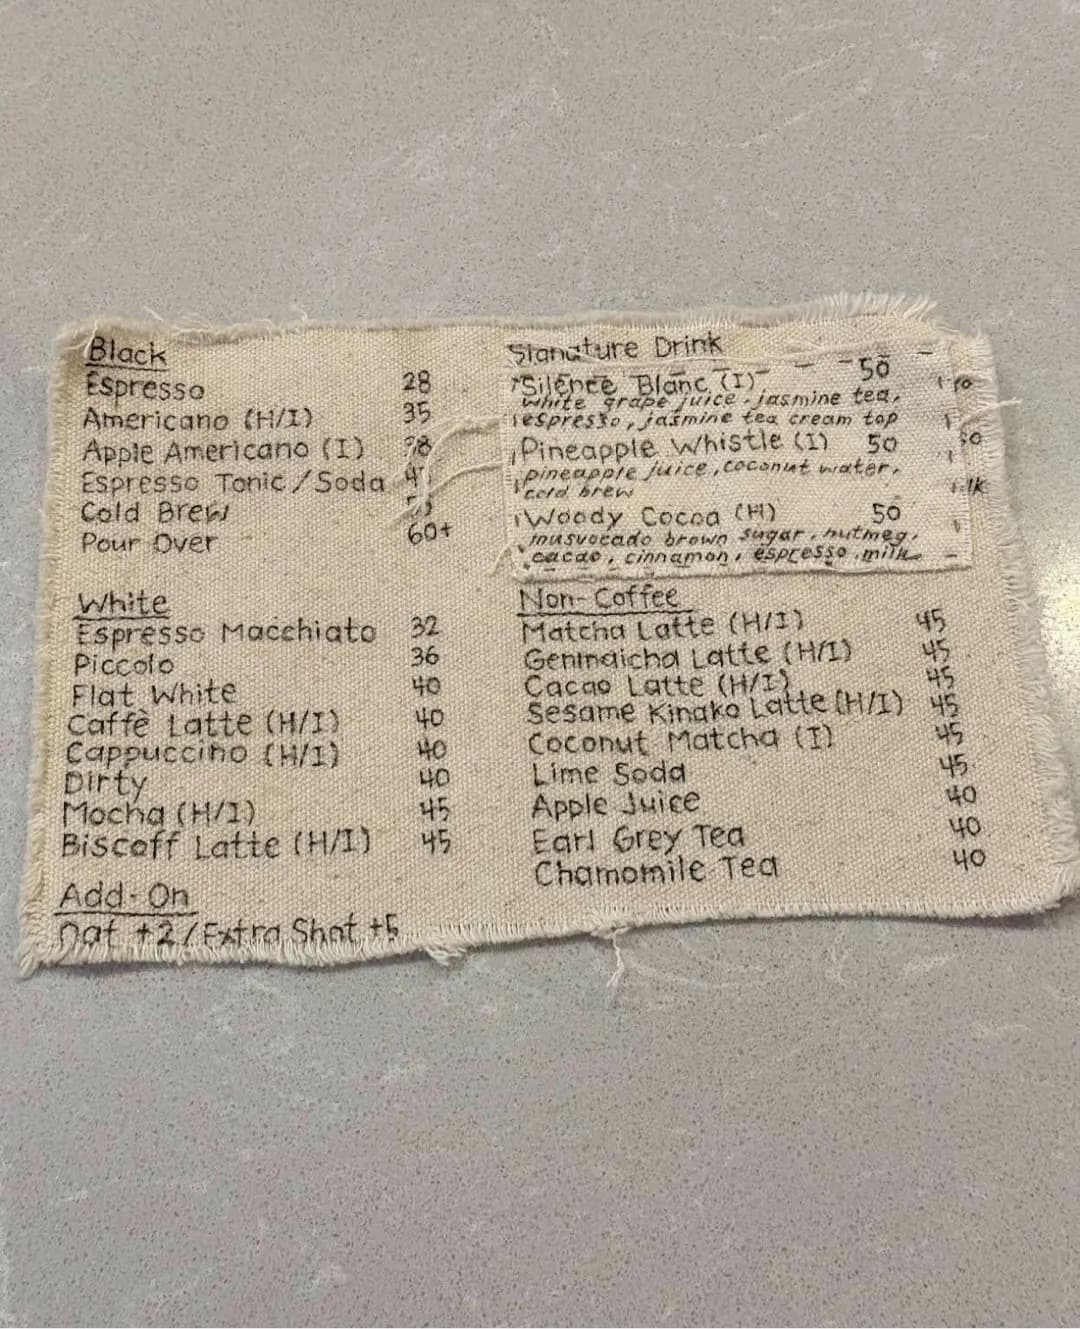 Black
Espresso 28
Americano (H/I) 35
Apple Americano (I)
Espresso Tonic/Soda
Cold Brew
Pour Over 60+
White
Espresso Macchiato 32
Piccolo 36
Flat White 40
Caffè Latte (H/I) 40
Cappuccino (H/I) 40
Dirty 40
Mocha (H/I) 45
Biscoff Latte (H/I) 45
Add-On
Oat +2/Extra Shot +5
Signature Drink
Silence Blanc (I) 50
white grape juice, jasmine tea,
espresso, jasmine tea cream top
Pineapple Whistle (I) 50
pineapple juice, coconut water,
cold brew
Woody Cocoa (H) 50
musvocado brown sugar, nutmeg,
cacao, cinnamon, espresso, milk
Non-Coffee
Matcha Latte (H/I) 45
Genmaicha Latte (H/I) 45
Cacao Latte (H/I) 45
Sesame Kinako Latte (H/I) 45
Coconut Matcha (I) 45
Lime Soda 45
Apple Juice 40
Earl Grey Tea 40
Chamomile Tea 40